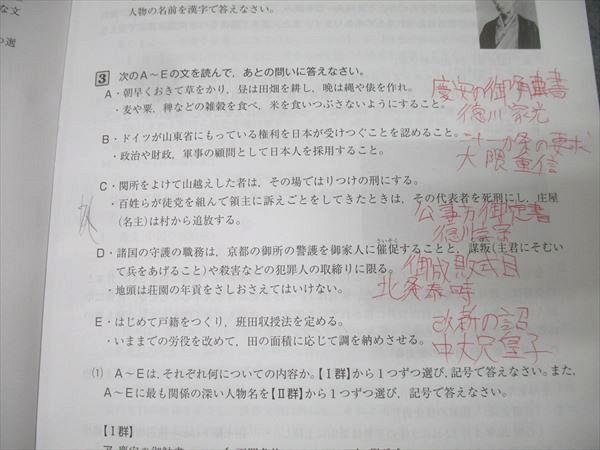 な文
つ選
人物の名前を漢字で答えなさい。
3 次のA~Eの文を読んで,あとの問いに答えなさい。
A・朝早くおきて草をかり,昼は田畑を耕し,晩は縄や俵を作れ。
慶安の御触書
・麦や粟,稗などの雑穀を食べ,米を食いつぶさないようにすること。
徳川家光
B・ドイツが山東省にもっている権利を日本が受けつぐことを認めること。
二十一カ条の要求
・政治や財政,軍事の顧問として日本人を採用すること。
大隈重信
C・関所をよけて山越えした者は,その場ではりつけの刑にする。
・百姓らが徒党を組んで領主に訴えごとをしてきたときは,その代表者を死刑にし,庄屋
(名主)は村から追放する。
公事方御定書
徳川吉宗
さいそく
D・諸国の守護の職務は,京都の御所の警護を御家人に催促することと,謀叛(主君にそむい
て兵をあげること)や殺害などの犯罪人の取締りに限る。
御成敗式目
・地頭は荘園の年貢をさしおさえてはいけない。
北条泰時
E・はじめて戸籍をつくり,班田収授法を定める。
改新の詔
・いままでの労役を改めて,田の面積に応じて調を納めさせる。
中大兄皇子
(1) A~Eは,それぞれ何についての内容か。【Ⅰ群】から1つずつ選び,記号で答えなさい。また,
A~Eに最も関係の深い人物名を【Ⅱ群】から1つずつ選び,記号で答えなさい。
【Ⅰ群】